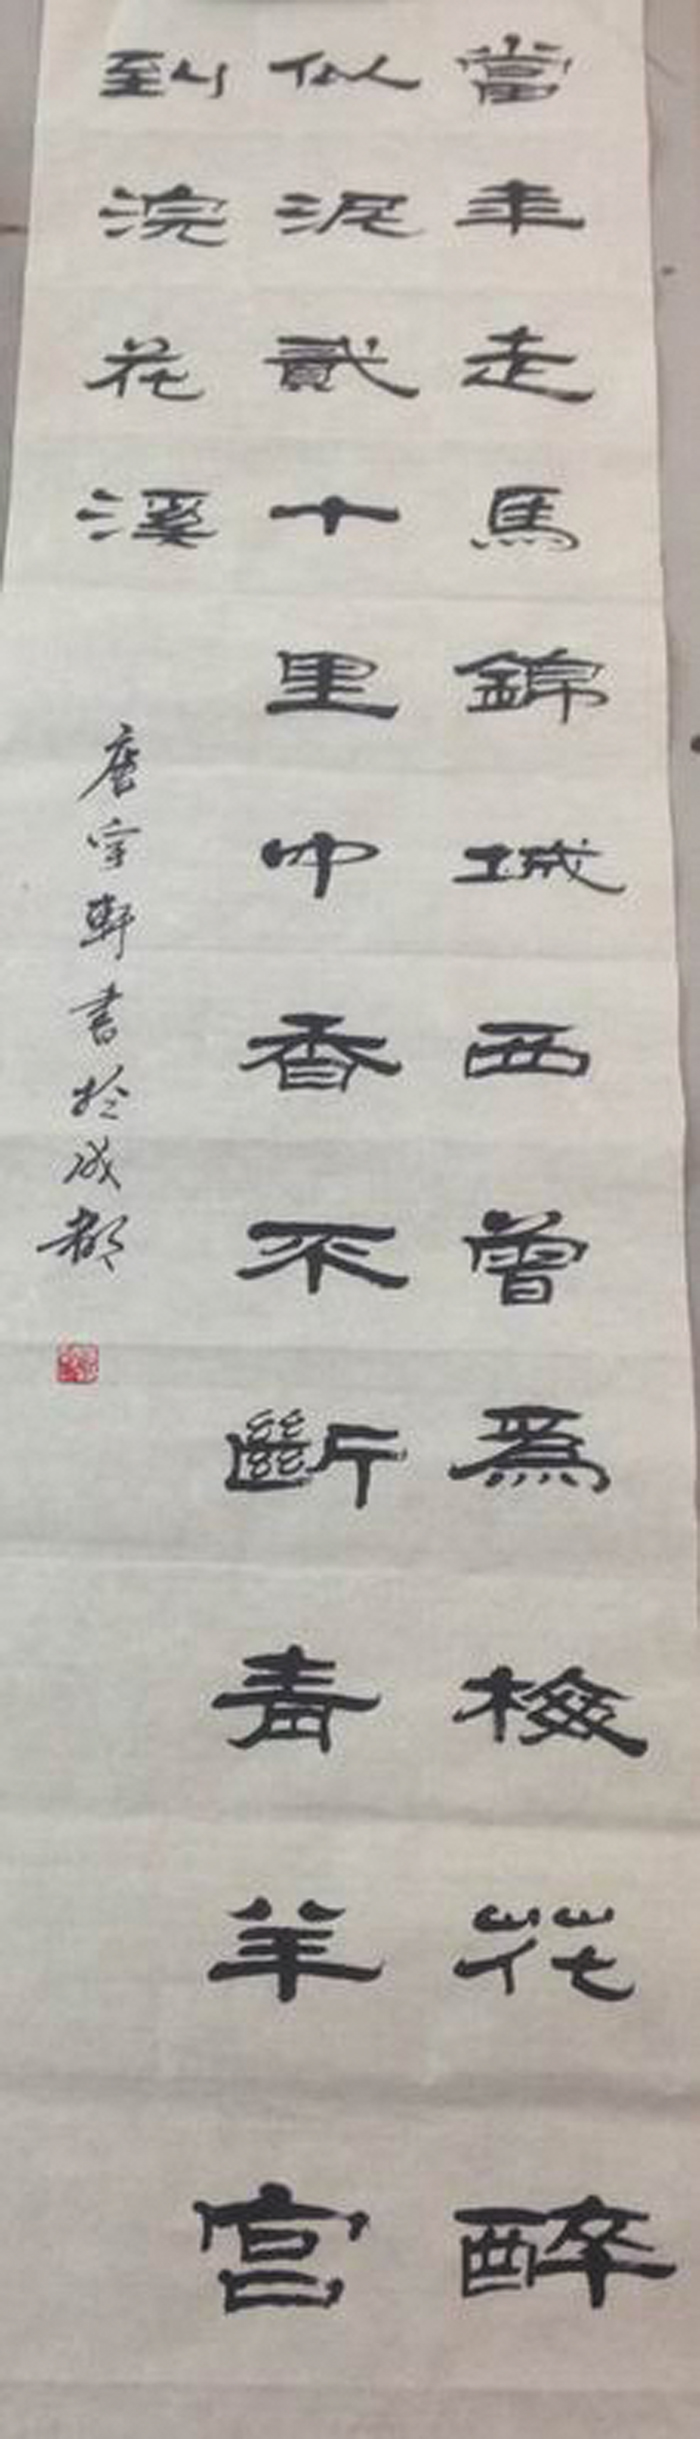 當年走馬錦城西曾為檢花醉
似泥貳十里中香不斷青羊宮
到浣花溪
唐宇軒書於成都